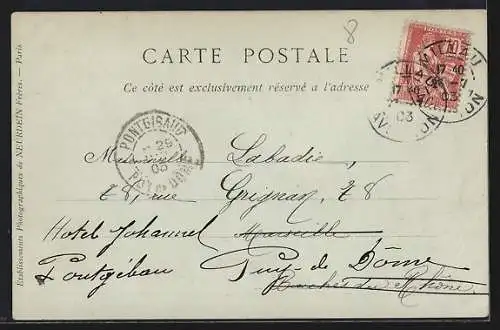 8
CARTE POSTALE
Ce côté est exclusivement réservé à l'adresse
Etablissements Photographiques de NEURDEIN Frères. — Paris
MILLAU
17 40
03
AVEYRON
PONTGIBAUD
29
03
PUY DE DOME
Mademoiselle Labadie
28, rue Grignan, 28
Hotel Johannel Marseille
Pontgibau Puy-de Dôme
Bouches du Rhône